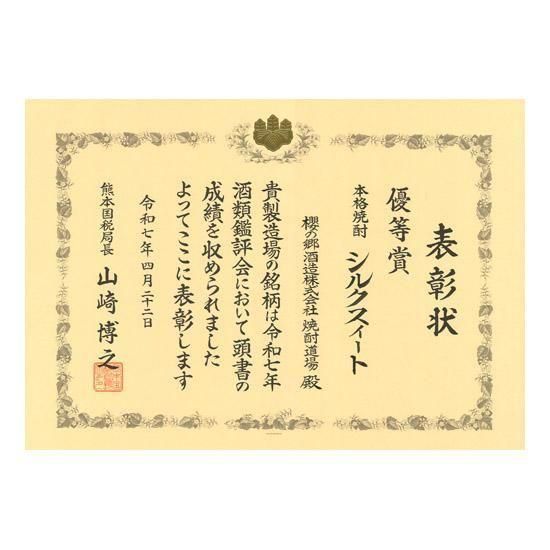 表彰状
優等賞
本格焼酎 シルクスィート
櫻の郷酒造株式会社 焼酎道場 殿
貴製造場の銘柄は令和七年
酒類鑑評会において頭書の
成績を収められました
よってここに表彰します
令和七年四月二十二日
熊本国税局長 山崎博之